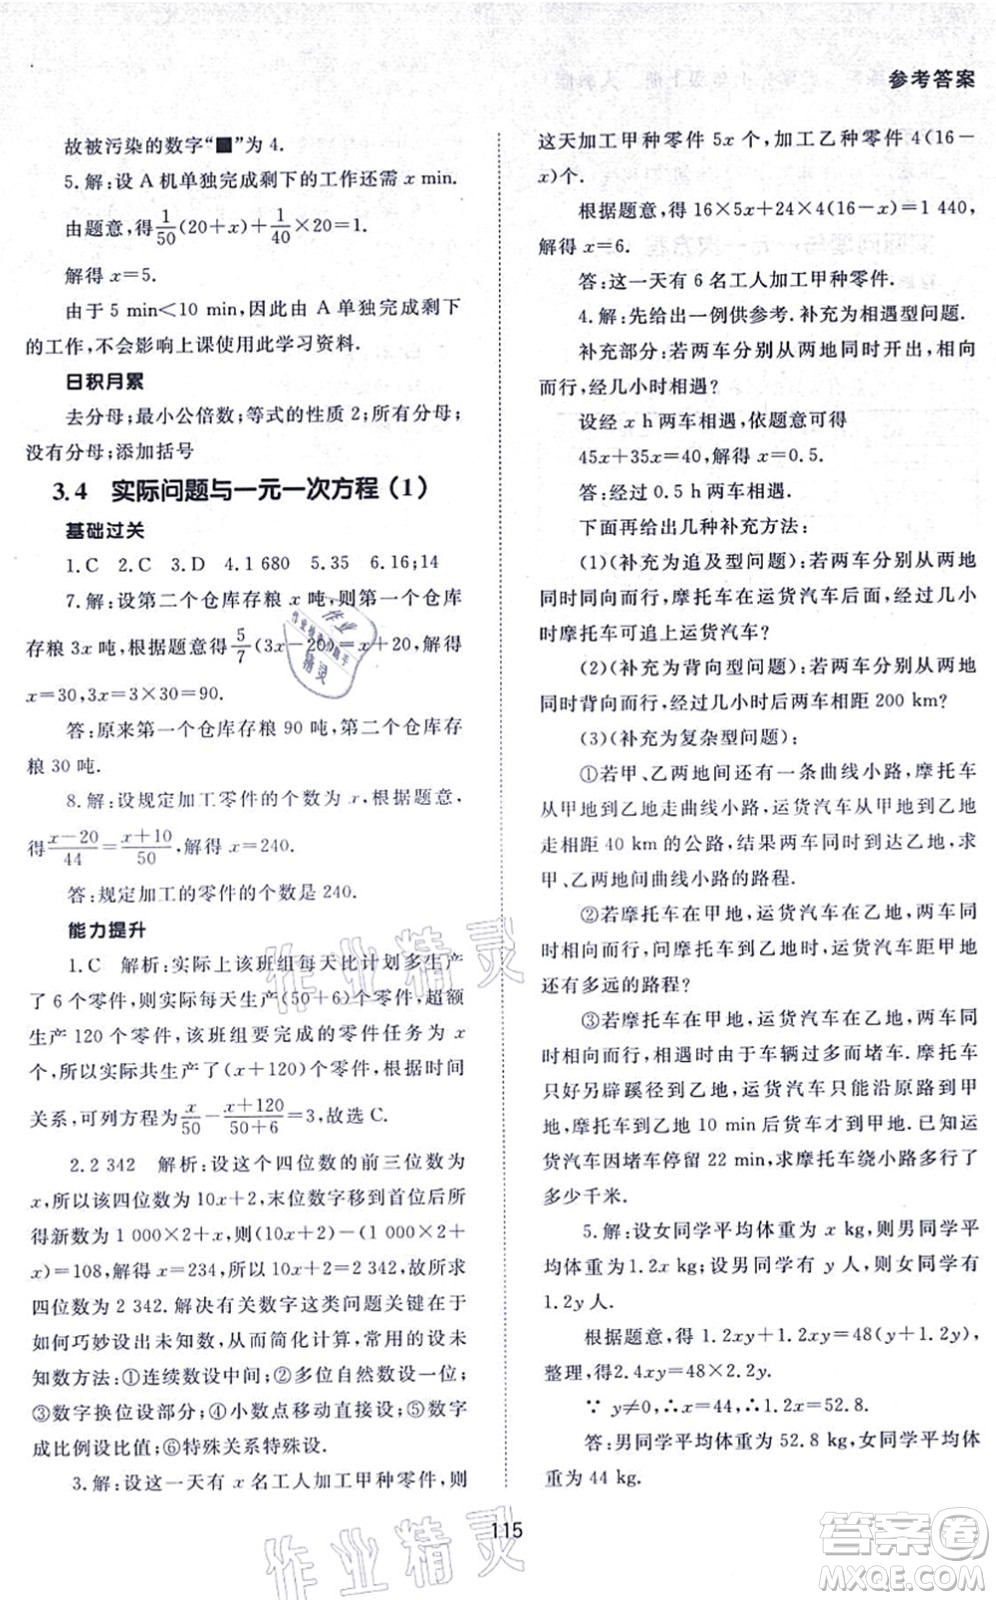 参考答案
故被污染的数字“■”为 4.
5.解:设 A 机单独完成剩下的工作还需 x min.
由题意,得 1/50(20+x)+1/40×20=1.
解得 x=5.
由于 5 min<10 min,因此由 A 单独完成剩下
的工作,不会影响上课使用此学习资料.
日积月累
去分母;最小公倍数;等式的性质 2;所有分母;
没有分母;添加括号
3.4 实际问题与一元一次方程(1)
基础过关
1.C 2.C 3.D 4.1 680 5.35 6.16;14
7.解:设第二个仓库存粮 x 吨,则第一个仓库
存粮 3x 吨,根据题意得 5/7(3x-20)=x+20,解得
x=30,3x=3×30=90.
答:原来第一个仓库存粮 90 吨,第二个仓库存
粮 30 吨.
8.解:设规定加工零件的个数为 x,根据题意,
得 (x-20)/44=(x+10)/50,解得 x=240.
答:规定加工的零件的个数是 240.
能力提升
1.C 解析:实际上该班组每天比计划多生产
了 6 个零件,则实际每天生产(50+6)个零件,超额
生产 120 个零件,该班组要完成的零件任务为 x
个,则实际共生产了(x+120)个零件,根据时间
关系,可列方程为 x/50-(x+120)/(50+6)=3,故选 C.
2.2 342 解析:设这个四位数的前三位数为
x,所以该四位数为 10x+2,末位数字移到首位后所
得新数为 1 000×2+x,则(10x+2)-(1 000×2+
x)=108,解得 x=234,所以 10x+2=2 342.故所求
四位数为 2 342.解决有关数字这类问题关键在于
如何巧妙设出未知数,以简化计算,常用的设未
知数方法:①连续数设中间;②多位自然数设一位;
③数字换位设部分;④小数点移动直接设;⑤数字
成比例设比值;⑥特殊关系特殊设.
3.解:设这一天有 x 名工人加工甲种零件,则
这天加工甲种零件 5x 个,加工乙种零件 4(16-
x)个.
根据题意,得 16×5x+24×4(16-x)=1 440,
解得 x=6.
答:这一天有 6 名工人加工甲种零件.
4.解:先给出一例供参考.补充为相遇型问题.
补充部分:若两车分别从两地同时开出,相向
而行,经几小时相遇?
设经 x h 两车相遇,依题意可得
45x+35x=40,解得 x=0.5.
答:经过 0.5 h 两车相遇.
下面再给出几种补充方法:
(1)(补充为追及型问题):若两车分别从两地
同时同向而行,摩托车在运货汽车后面,经几小
时摩托车可追上运货汽车?
(2)(补充为背向型问题):若两车分别从两地
同时背向而行,经过几小时后两车相距 200 km?
(3)(补充为复杂型问题):
①若甲、乙两地间还有一条曲线小路,摩托车
从甲地到乙地走曲线小路,运货汽车从甲地到乙地
走相距 40 km的公路,结果两车同时到达乙地,求
甲、乙两地间曲线小路的路程.
②若摩托车在甲地,运货汽车在乙地,两车同
时相向而行,问摩托车到乙地时,运货汽车距甲地
还有多远的路程?
③若摩托车在甲地,运货汽车在乙地,两车同
时相向而行,相遇时由于车辆过多而堵车.摩托车
只好另辟蹊径到乙地,运货汽车只能沿原路到甲
地,摩托车到乙地 10 min 后货车才到甲地.已知货
车因堵车停留 22 min,求摩托车绕小路多行驶了
多少千米.
5.解:设女同学平均体重为 x kg,则男同学平
均体重为 1.2x kg;设男同学有 y 人,则女同学有
1.2y 人.
根据题意,得 1.2xy+1.2xy=48(y+1.2y),
整理,得 2.4xy=48×2.2y.
∵ y≠0,∴x=44,∴1.2x=52.8.
答:男同学平均体重为 52.8 kg,女同学平均体
重为 44 kg.
作业
作业检查小助手
精灵
作业精灵
作业精灵
115
答案圈
MXQE.COM